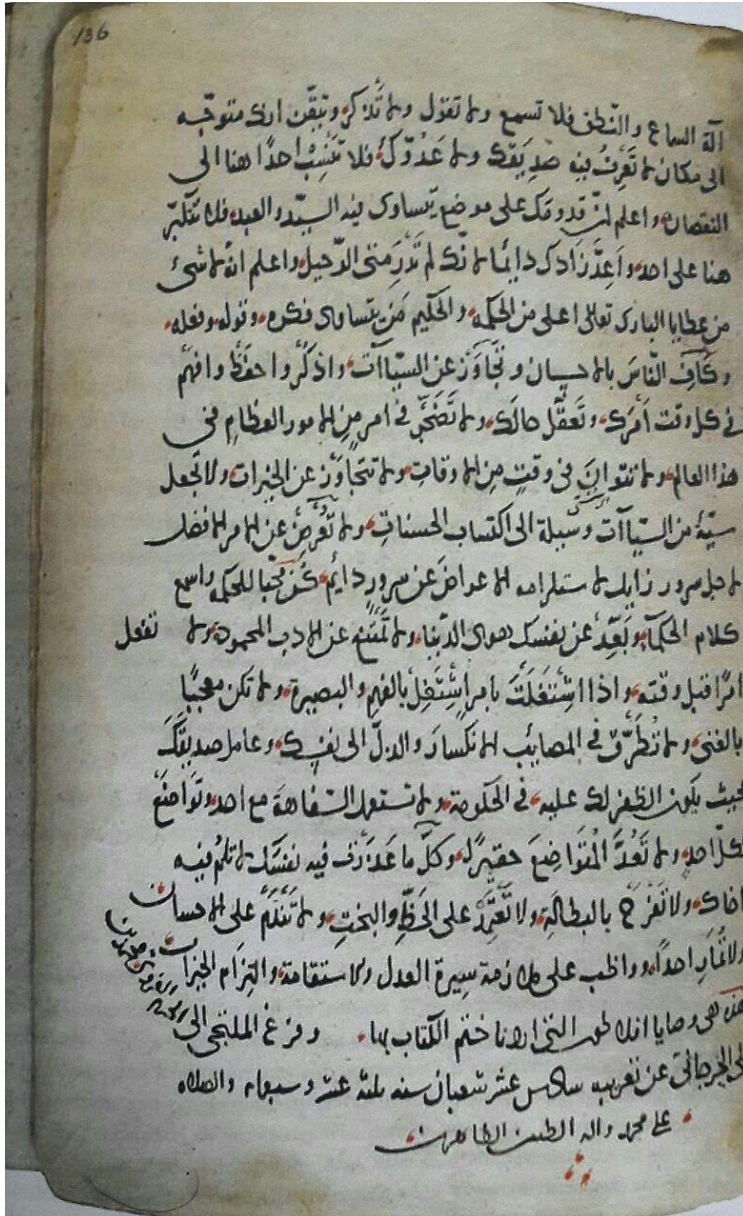 136
آلة السماع والنّطق فلا تسمع ولا تقول ولا تُذكر وتيقّن انك متوجّه
الى مكان لا تَعرِفُ فيه صَدِيقك ولا عَدُوّكَ فلا تَنْسِبْ احدًا هنا الى
النقصان واعلم انّ قدومك على موضع يتساوى فيه السيّد والعبد فلا تتكبّر
هنا على احد واَعِدَّ زادك دايمًا لانّك لم تَدْرِ متى الرّحيل واعلم انّه لا شئ
من عطايا البارى تعالى اعلى من الحكمة والحكيم مَن يتساوى فكره وقوله وفعله
وكَافِ النّاسَ بالاحسان وتَجَاوَزْ عن السيّاآت واذكُروا حفَظْ وافهم
فى كل وقت اَمرَك وتَعقَّل حالَك ولا تَضجَر فى امر مِن الامور العظام فى
هذا العالم ولا تتوانَ فى وقتٍ مِن الاوقات ولا تتجاوز عن الخيرات ولا تجعل
سيّئة من السيّاآت وسيلة الى اكتساب الحسنات ولا تُعرِضْ عن الامر الافضل
لاجل سرور زايل الاعراض عن سرور دايم كُن محبّا للحكمة واسمع
كلام الحكمآء وبَعِّد عن نفسك هوى الدّنيا ولا تَمتَنِع عن الادب المحمودة ولا تفعل
امرًا قبل وقته واذا اشتَغَلتَ بامرٍ اِشتَغِل بالفهم والبصيرة ولا تكن معجبًا
بالغنى ولا تُطرّق فى المصايب الانكسار والذلّ الى نفسك وعامل صديقَكَ
بحيث يكون الظفر لك عليه فى الحكومة ولا تستعمل السّفاهة مع احد وتَواضَعْ
لكلّ احد ولا تَعُدَّ المُتَواضِعَ حقيرًا وكلّ ما عَذَرْتَ فيه نفسَك لا تلُم فيه
اخاك ولا تَفرَح بالبطالةِ ولا تَعتَمِد على الحَظِّ والبَختِ ولا تَنْدَمْ على الاحسان
ولا تُمارِ احدًا وواظب على ملازمة سِيرة العدل والاستقامة والتِزام الخيرات
هذه هى وصايا افلاطون التى اردنا ختم الكتاب بها وفرغ الملتجى الى
الجرجانى عن تعريب سادس عشر شعبان سنه ثلث عشر وسبعمائه والصلاه
على محمد واله الطيبين الطاهرين